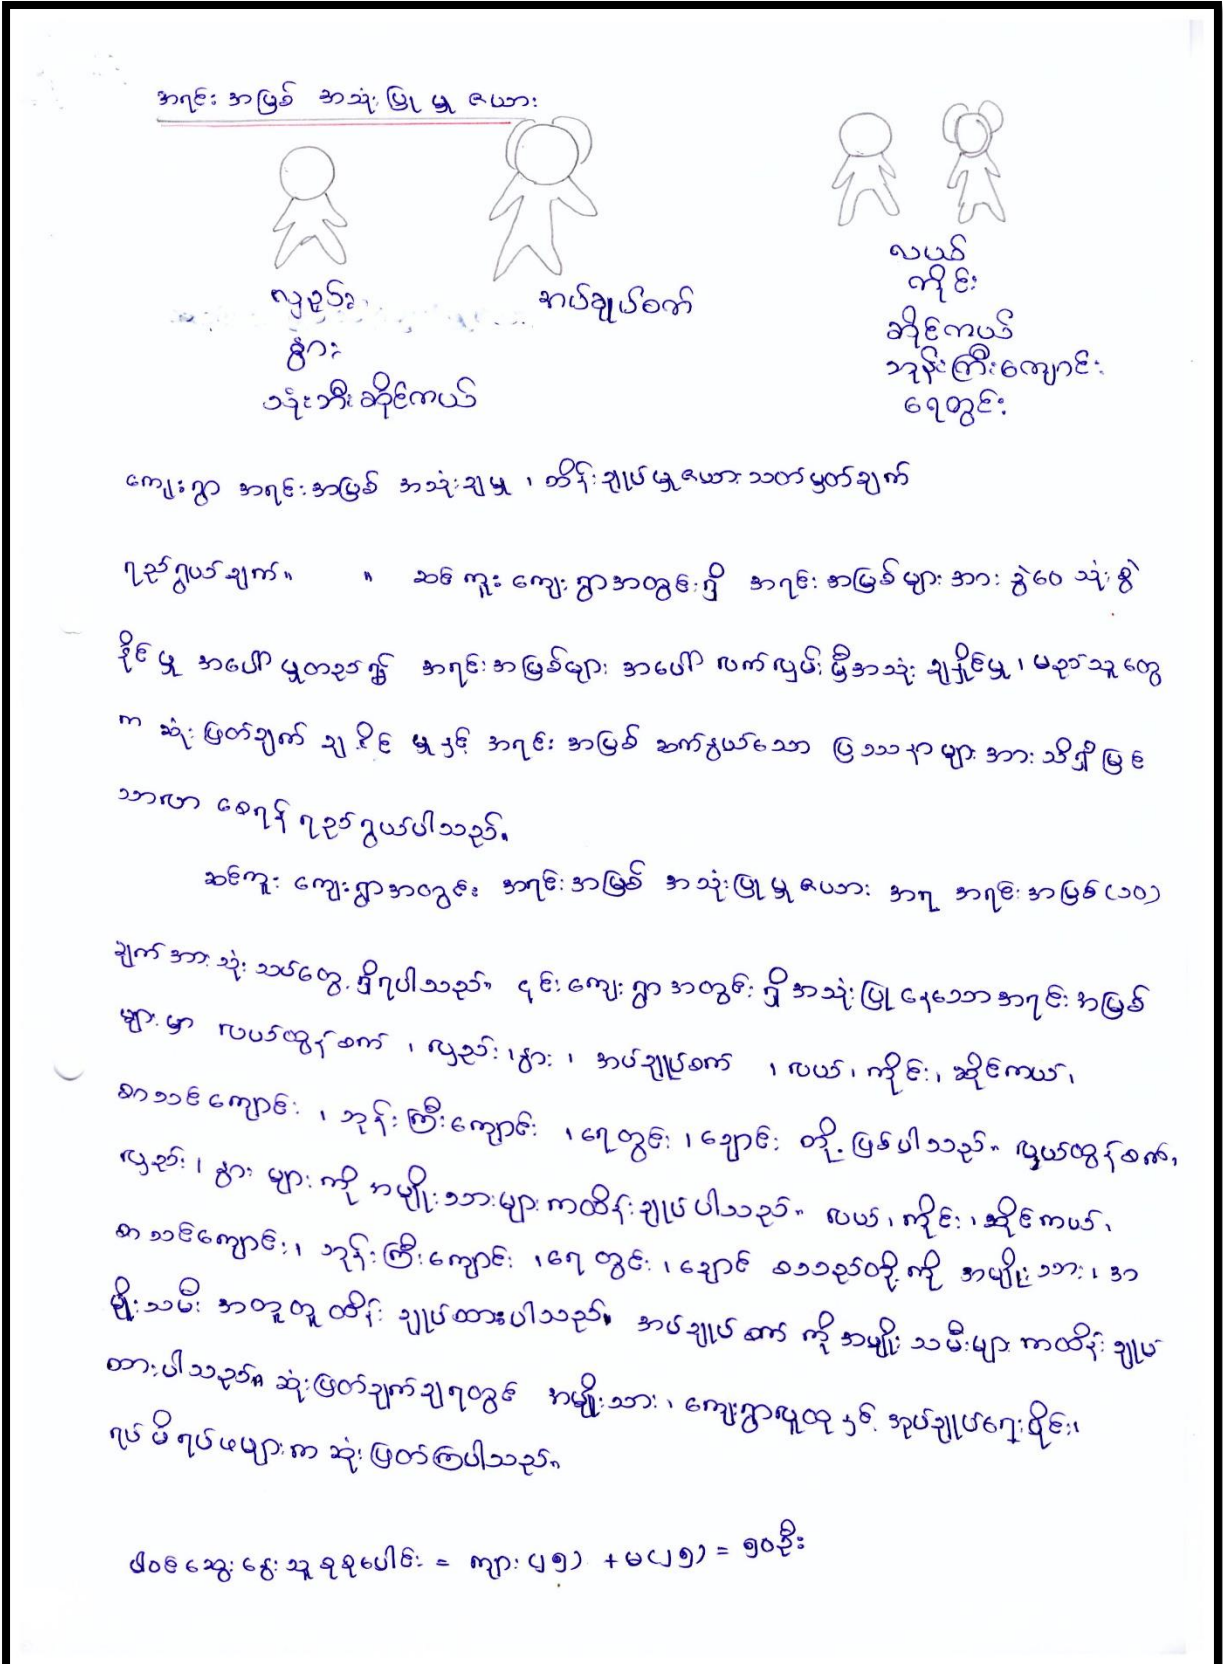 အရင်းအမြစ် အသုံးပြုမှု ဇယား
လှည်း
နွား
သုံးဘီးဆိုင်ကယ်
အပ်ချုပ်စက်
လယ်
ကိုင်း
ဆိုင်ကယ်
ဘုန်းကြီးကျောင်း
ရေတွင်း
ကျေးရွာ အရင်းအမြစ် အသုံးချမှု ၊ ထိန်းချုပ်မှုဇယား သတ်မှတ်ချက်
ရည်ရွယ်ချက်။ ။ ဆင်ကူး ကျေးရွာအတွင်းရှိ အရင်းအမြစ်များအား ခွဲဝေ သုံးစွဲ
နိုင်မှု အပေါ် မူတည်၍ အရင်းအမြစ်များ အပေါ် လက်လှမ်းမှီအသုံးချနိုင်မှု ၊ မည်သူတွေ
က ဆုံးဖြတ်ချက် ချနိုင်မှုနှင့် အရင်းအမြစ် ဆက်နွယ်သော ပြဿနာများအား သိရှိမြင်
သာလာ စေရန် ရည်ရွယ်ပါသည်။
ဆင်ကူး ကျေးရွာအတွင်း အရင်းအမြစ် အသုံးပြုမှုဇယား အရ အရင်းအမြစ် (၁၀)
ချက်အား သုံးသပ်တွေ့ရှိရပါသည်။ ၎င်းကျေးရွာအတွင်းရှိ အသုံးပြုနေသောအရင်းအမြစ်
များမှာ လယ်ထွန်စက် ၊ လှည်း ၊ နွား ၊ အပ်ချုပ်စက် ၊ လယ် ၊ ကိုင်း ၊ ဆိုင်ကယ် ၊
စာသင်ကျောင်း ၊ ဘုန်းကြီးကျောင်း ၊ ရေတွင်း ၊ ချောင်း တို့ ဖြစ်ပါသည်။ လွယ်ထွန်စက် ၊
လှည်း ၊ နွား များကို အမျိုးသားများကထိန်းချုပ်ပါသည်။ လယ် ၊ ကိုင်း ၊ ဆိုင်ကယ် ၊
စာသင်ကျောင်း ၊ ဘုန်းကြီးကျောင်း ၊ ရေတွင်း ၊ ချောင် စသည်တို့ကို အမျိုးသား ၊ အ
မျိုးသမီး အတူတူ ထိန်းချုပ်ထားပါသည်။ အပ်ချုပ်စက် ကို အမျိုးသမီးများ ကထိန်းချုပ်
ထားပါသည်။ ဆုံးဖြတ်ချက်ချရတွင် အမျိုးသား ၊ ကျေးရွာလူထုနှင့် အုပ်ချုပ်ရေးပိုင်း ၊
ရပ်မိရပ်ဖများက ဆုံးဖြတ်ကြပါသည်။
ပါဝင်ဆွေးနွေးသူ စုစုပေါင်း = ကျား (၂၅) + မ (၂၅) = ၅၀ဦး